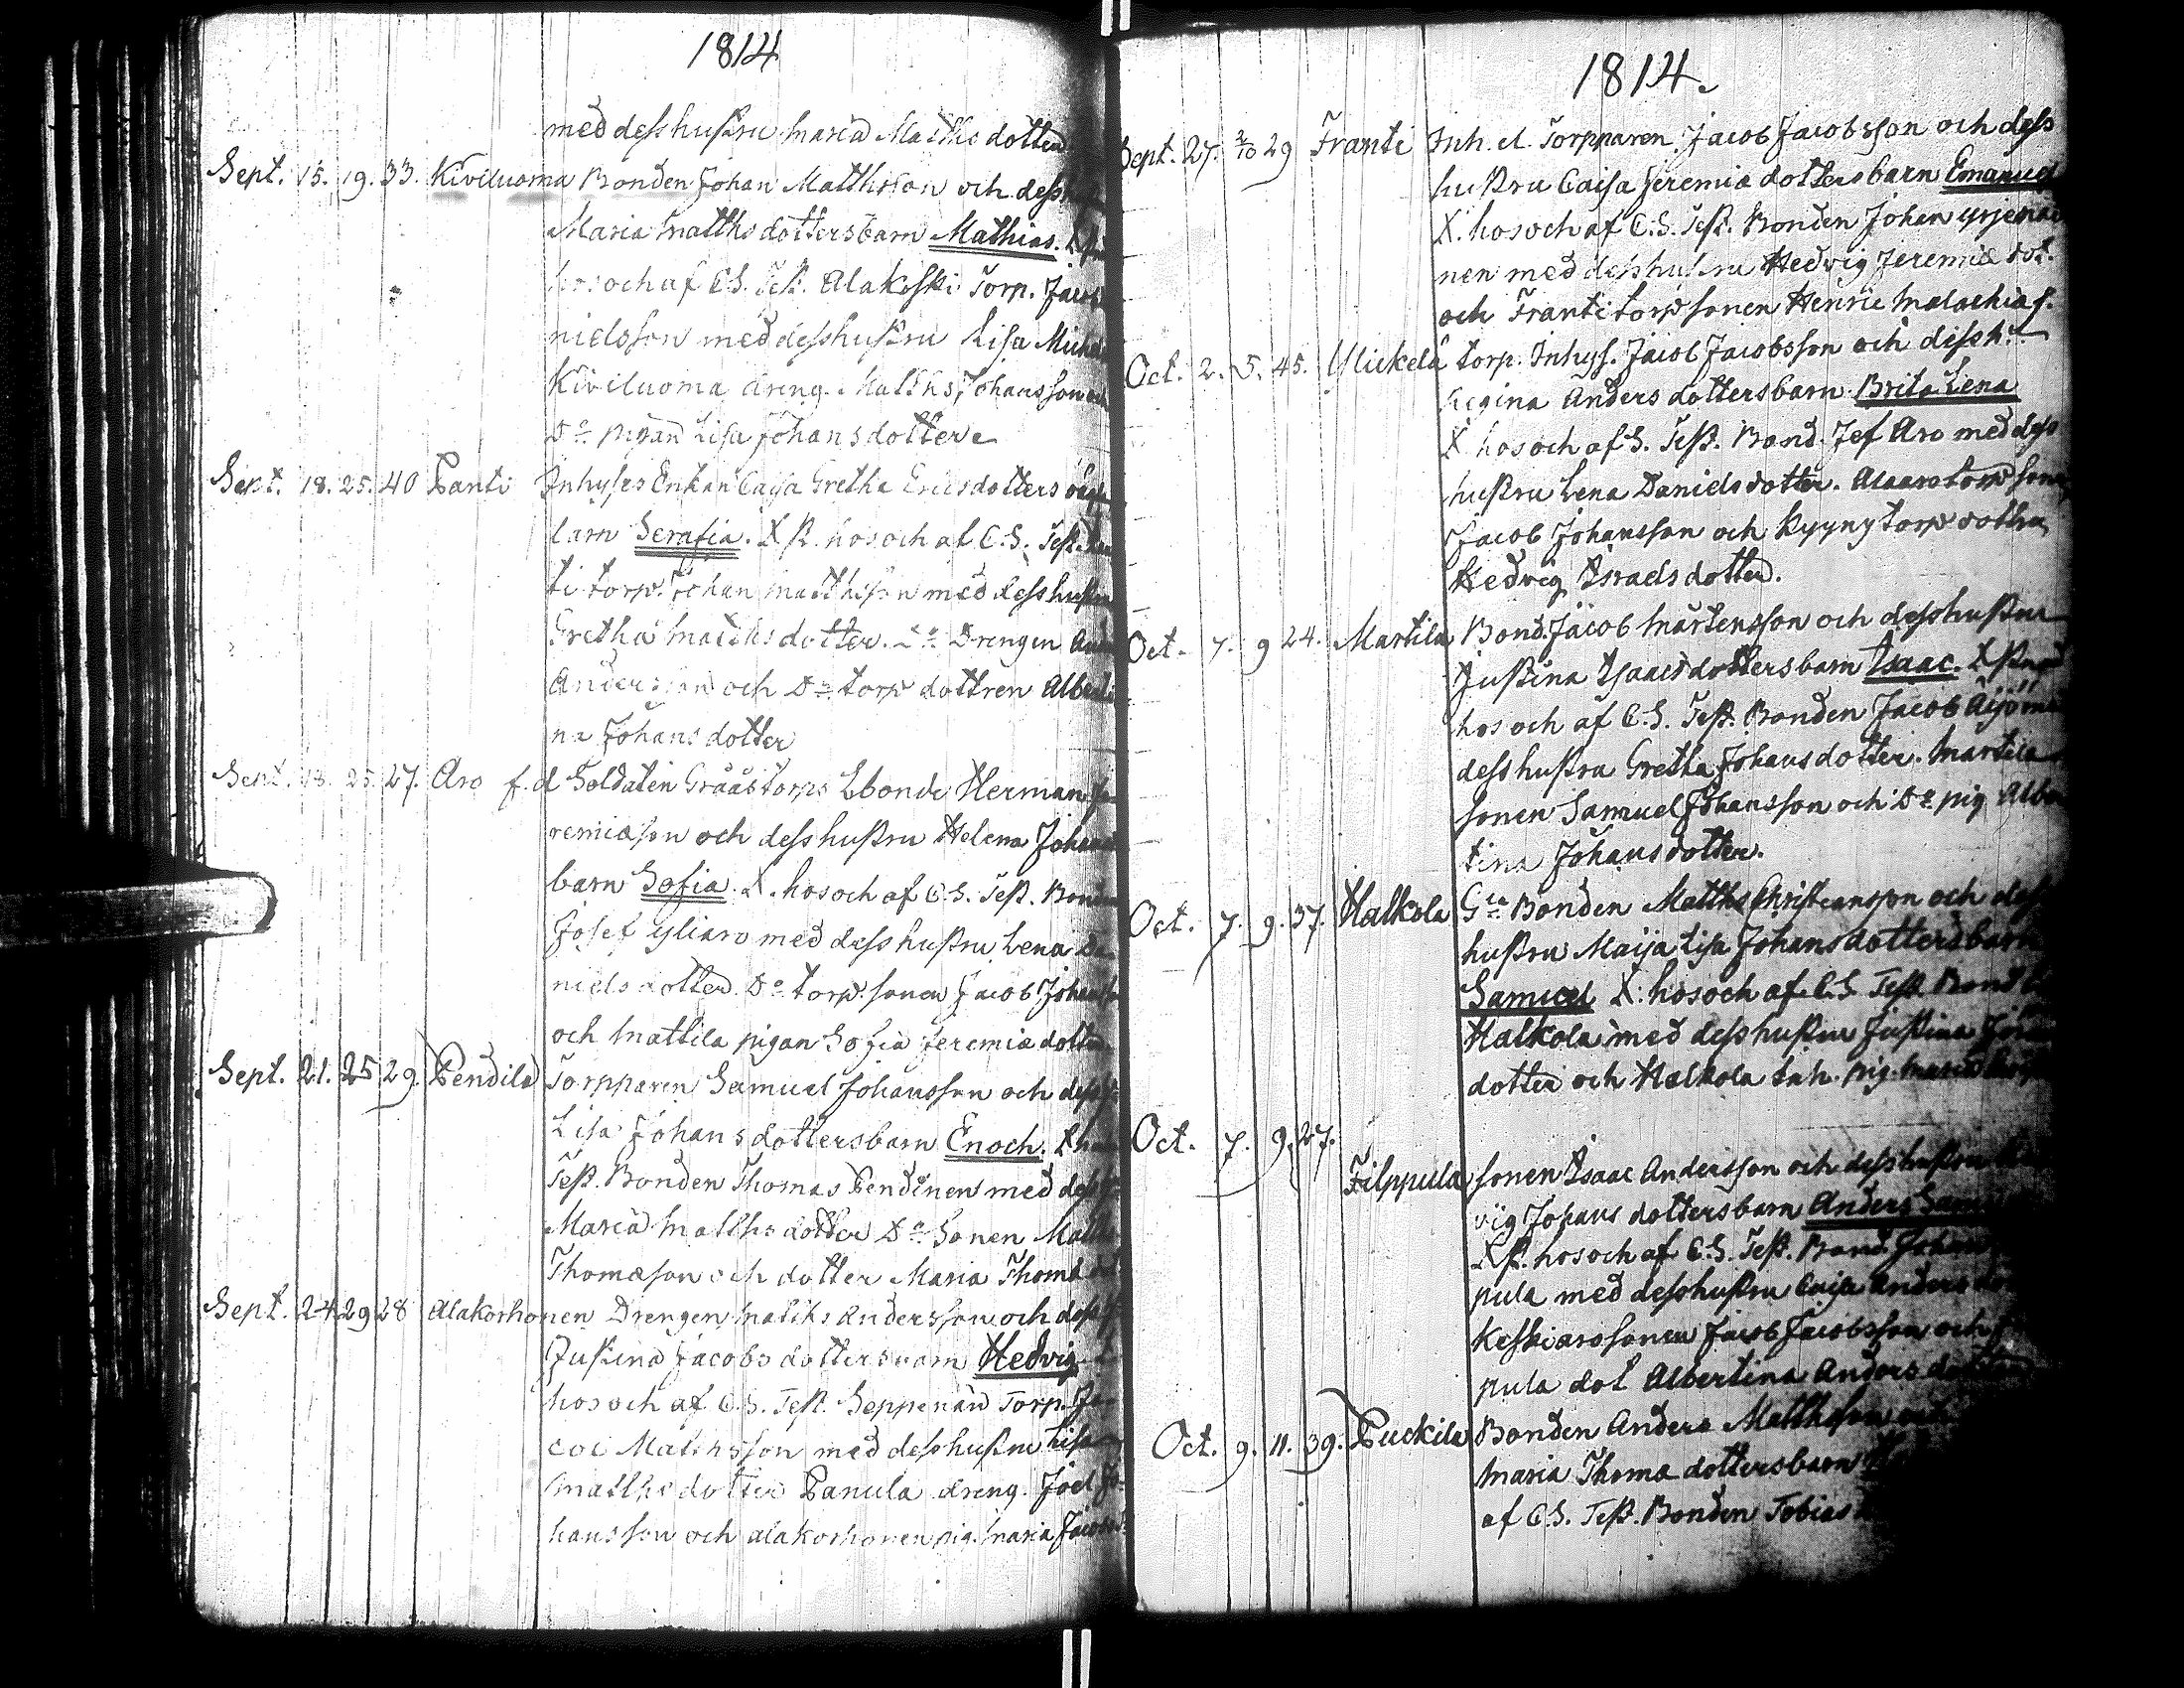 1814
med dess hustru Maria Matths dotter
Sept. 15. 19. 33. Kiviluoma Bonden Johan Matthsson och dess
Maria Matths dotters barn Mathias.
hos och af C.S. Test. Alakoski Torp. Jacob
nielsson med dess hustru Lisa Michels
Kiviluoma dreng. Matths Johansson och
Do pigan Lisa Johans dotter
Sept. 18. 25. 40 Panti Inhyses Enkan Caisa Gretha Erics dotters oägta
barn Serafia. X st. hos och af C.S. Test. Pan
ti torp. Johan Matthsson med dess hustru
Gretha Matths dotter. Do Drengen
Andersson och Do torp dottren Alberti
na Johans dotter
Sept. 18. 25. 27. Aro f.d Soldaten Gråås torps Lbonde Herman Je
remiæson och dess hustru Helena Johans
barn Sofia. X. hos och af C.S. Test. Bonden
Josef Yliaro med dess hustru Lena Da
niels dotter. Do torp. sonen Jacob Johansson
och Mattila pigan Sofia Jeremiæ dotter
Sept. 21. 25 29. Pendila Torpparen Samuel Johansson och dess
Lisa Johans dotters barn Enoch. X
Test. Bonden Thomas Pendinen med dess
Maria Matths dotter Do Sonen Matths
Thomæson och dotter Maria Thomæ
Sept. 24 29 28 Alakorhonen Drengen Matths Andersson och dess
Justina Jacobs dotters barn Hedvig
hos och af C.S. Test. Seppenän Torp. Ja
cob Mathsson med dess hustru Lisa
Matths dotter Panula dreng. Joel Jo
hansson och Alakorhonen pig. Maria Jacobs
1814.
Sept. 27. 2/10 29 Franti Inh. el. Torpparen Jacob Jacobsson och dess
hustru Caisa Jeremiæ dotters barn Emanuel
X. hos och af C.S. Test. Bonden Johan Yrjenäi
nen med dess hustru Hedvig Jeremiæ dot.
och Franti torp sonen Henric Malachias.
Oct. 2. 5. 45. Ylickelä torp. Inhys. Jacob Jacobsson och dess h.
Regina Anders dotters barn Brita Lena
X hos och af S. Test. Bond. Jef Aro med dess
hustru Lena Daniels dotter. Alaaro torp sonen
Jacob Johansson och Kyyny torp dottren
Hedvig Israels dotter.
Oct. 7. 9 24. Martila Bond. Jacob Mårtensson och dess hustru
Justina Isaacs dotters barn Isaac. X st
hos och af C.S. Test. Bonden Jacob Äijö
dess hustru Gretha Johans dotter. Martila
sonen Samuel Johansson och Do pig Alber
tina Johans dotter.
Oct. 7. 9. 37. Halkola Gla Bonden Matths Christiansson och dess
hustru Maija Lisa Johans dotters barn
Samuel X. hos och af C.S. Test. Bond
Halkola med dess hustru Justina
dotter och Halkola inh. pig. Maria
Oct. 7. 9. 27.
Filppula sonen Isaac Andersson och dess hustru Hed
vig Johans dotters barn Anders
X st. hos och af C.S. Test. Bond. Johan
pula med dess hustru Caisa Anders
Keskiaro sonen Jacob Jacobsson och
pula dot Albertina Anders dotter
Oct. 9. 11. 39. Puckila Bonden Anders Matthsson och
Maria Thomæ dotters barn
af C.S. Test. Bonden Tobias